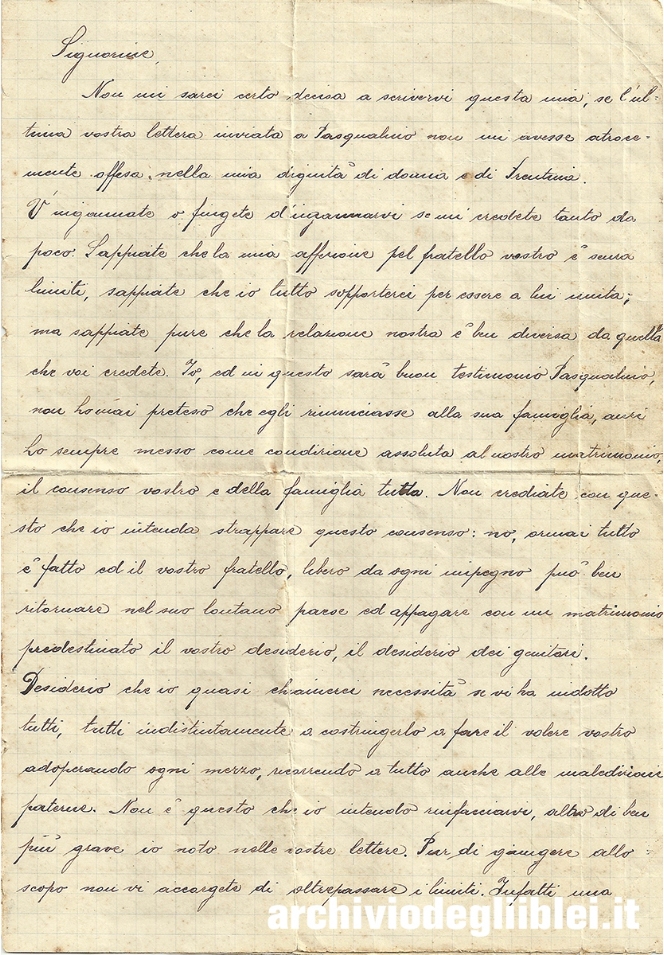 Signorine,
Non mi sarei certo decisa a scrivervi questa mia, se l'ul-
tima vostra lettera inviata a Pasqualino non mi avesse atroce-
mente offesa, nella mia dignità di donna e di Trentina.
V'ingannate o fingete d'ingannarvi se mi credete tanto da
poco. Sappiate che la mia affezione pel fratello vostro è senza
limiti, sappiate che io tutto sopporterei per essere a lui unita;
ma sappiate pure che la relazione nostra è ben diversa da quella
che voi credete. Io, ed in questo sarà buon testimonio Pasqualino,
non ho mai preteso che egli rinunciasse alla sua famiglia, anzi
ho sempre messo come condizione assoluta al nostro matrimonio,
il consenso vostro e della famiglia tutta. Non crediate con que-
sto che io intenda strappare questo consenso: no, ormai tutto
è fatto ed il vostro fratello, libero da ogni impegno può ben
ritornare nel suo lontano paese ed appagare con un matrimonio
predestinato il vostro desiderio, il desiderio dei genitori.
Desiderio che io quasi chiamerei necessità se vi ha indotto
tutti, tutti indistintamente a costringerlo a fare il volere vostro
adoperando ogni mezzo, ricorrendo a tutto anche alle maledizioni
paterne. Non è questo che io intendo rinfacciarvi, altro di ben
più grave io noto nelle vostre lettere. Pur di giungere allo
scopo non vi accorgete di oltrepassare i limiti. Infatti una
archiviodegliiblei.it